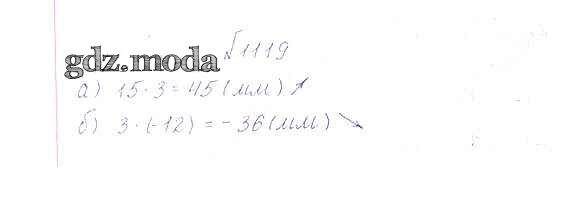 №1119
gdz.moda
а) 15·3=45(мм) ↗
б) 3·(-12)=-36(мм) ↘